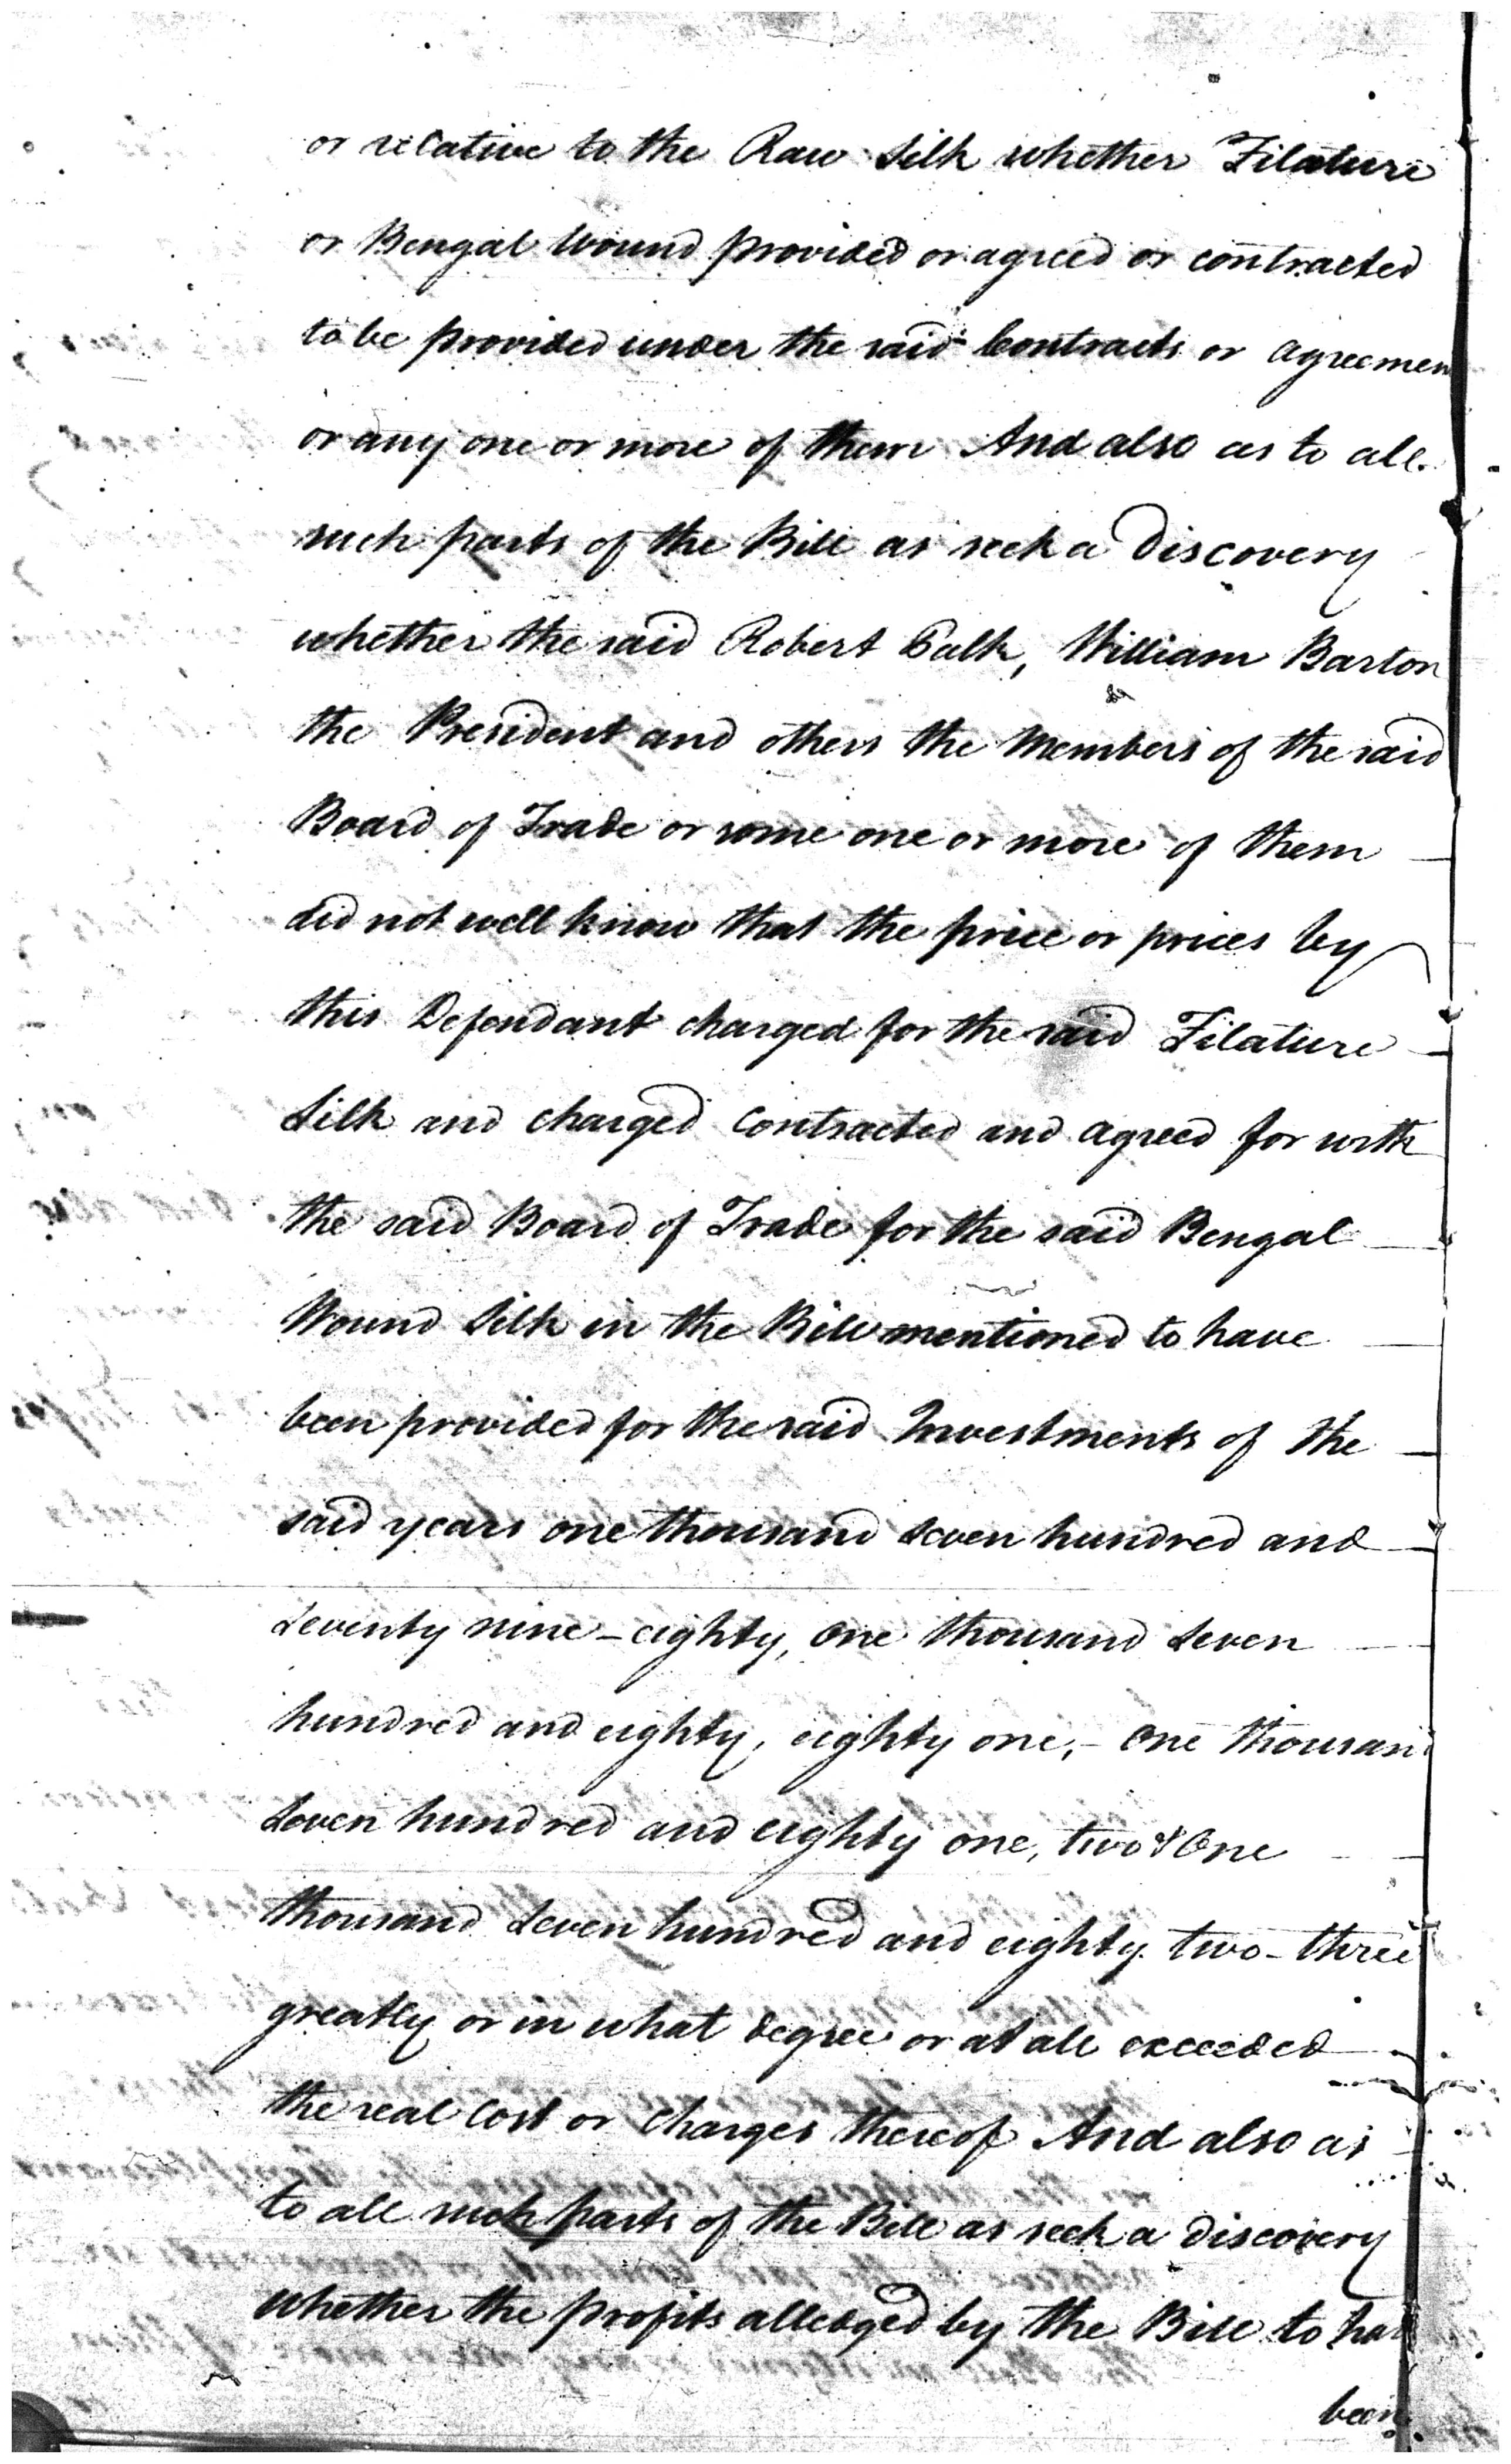 or relative to the Raw Silk whether Filature
or Bengal Wound provided or agreed or contracted
to be provided under the said Contracts or agreemen
or any one or more of them And also as to all
such parts of the Bill as seek a Discovery
whether the said Robert Palk, William Barton
the President and others the Members of the said
Board of Trade or some one or more of them
did not well know that the price or prices by
this Defendant charged for the said Filature
Silk and charged Contracted and agreed for with
the said Board of Trade for the said Bengal
Wound Silk in the Bill mentioned to have
been provided for the said Investments of the
said years one thousand seven hundred and
seventy nine - eighty, One thousand seven
hundred and eighty, eighty one, - One thousand
seven hundred and eighty one, two & One
thousand seven hundred and eighty two - three
greatly or in what degree or at all exceeded
the real Cost or Charges thereof And also as
to all such parts of the Bill as seek a discovery
whether the profits alledged by the Bill to have
been